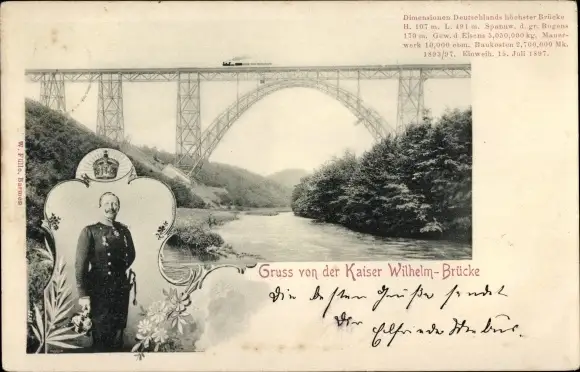 Dimensionen Deutschlands höchster Brücke
H. 107 m. L. 491 m. Spannw. d. gr. Bogens
170 m. Gew. d Eisens 5,050,000 kg. Mauer-
werk 10,000 cbm. Baukosten 2,700,000 Mk.
1893/97. Einweih. 15. Juli 1897.
W. Fülle, Barmen
Gruss von der Kaiser Wilhelm-Brücke
Die besten Grüße sendet
Dir Elfriede